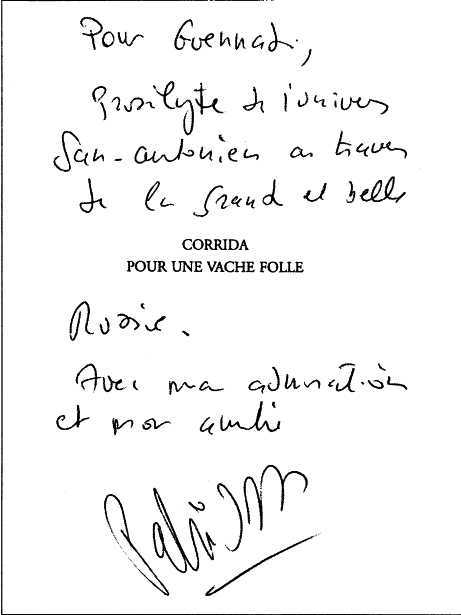 Pour Guennadi,
Prosélyte de l'univers
San-antonien au travers
de la grand et belle
CORRIDA
POUR UNE VACHE FOLLE
Russie.
Avec mon admiration
et mon amitié